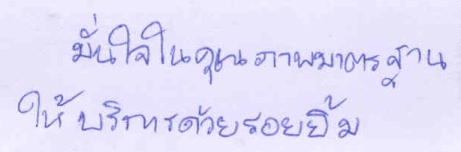 มั่นใจในคุณภาพมาตรฐาน
ให้บริการด้วยรอยยิ้ม